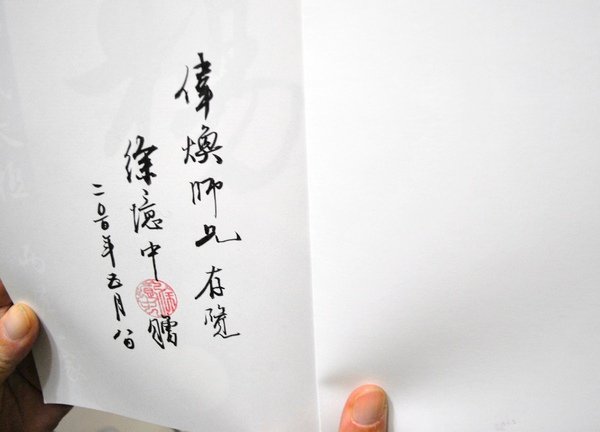 偉煥師兄 存覽
徐憶中 贈
二〇一〇年五月八日